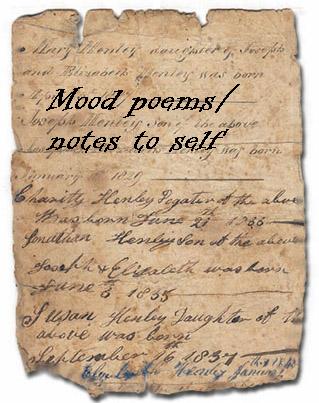 Mary Henley daughter of Joseph
and Elizabeth Henley was born
Mood poems/
Joseph Henley Son of the above
notes to self
was born
January
Charity Henley Dogater of the above
Was born June 21 1833
Jonathan Henley Son of the above
Joseph & Elizabeth was born
June 5 1835
Susan Henley Daughter of the
above was born
September 16th 1837
Elizabeth Henley